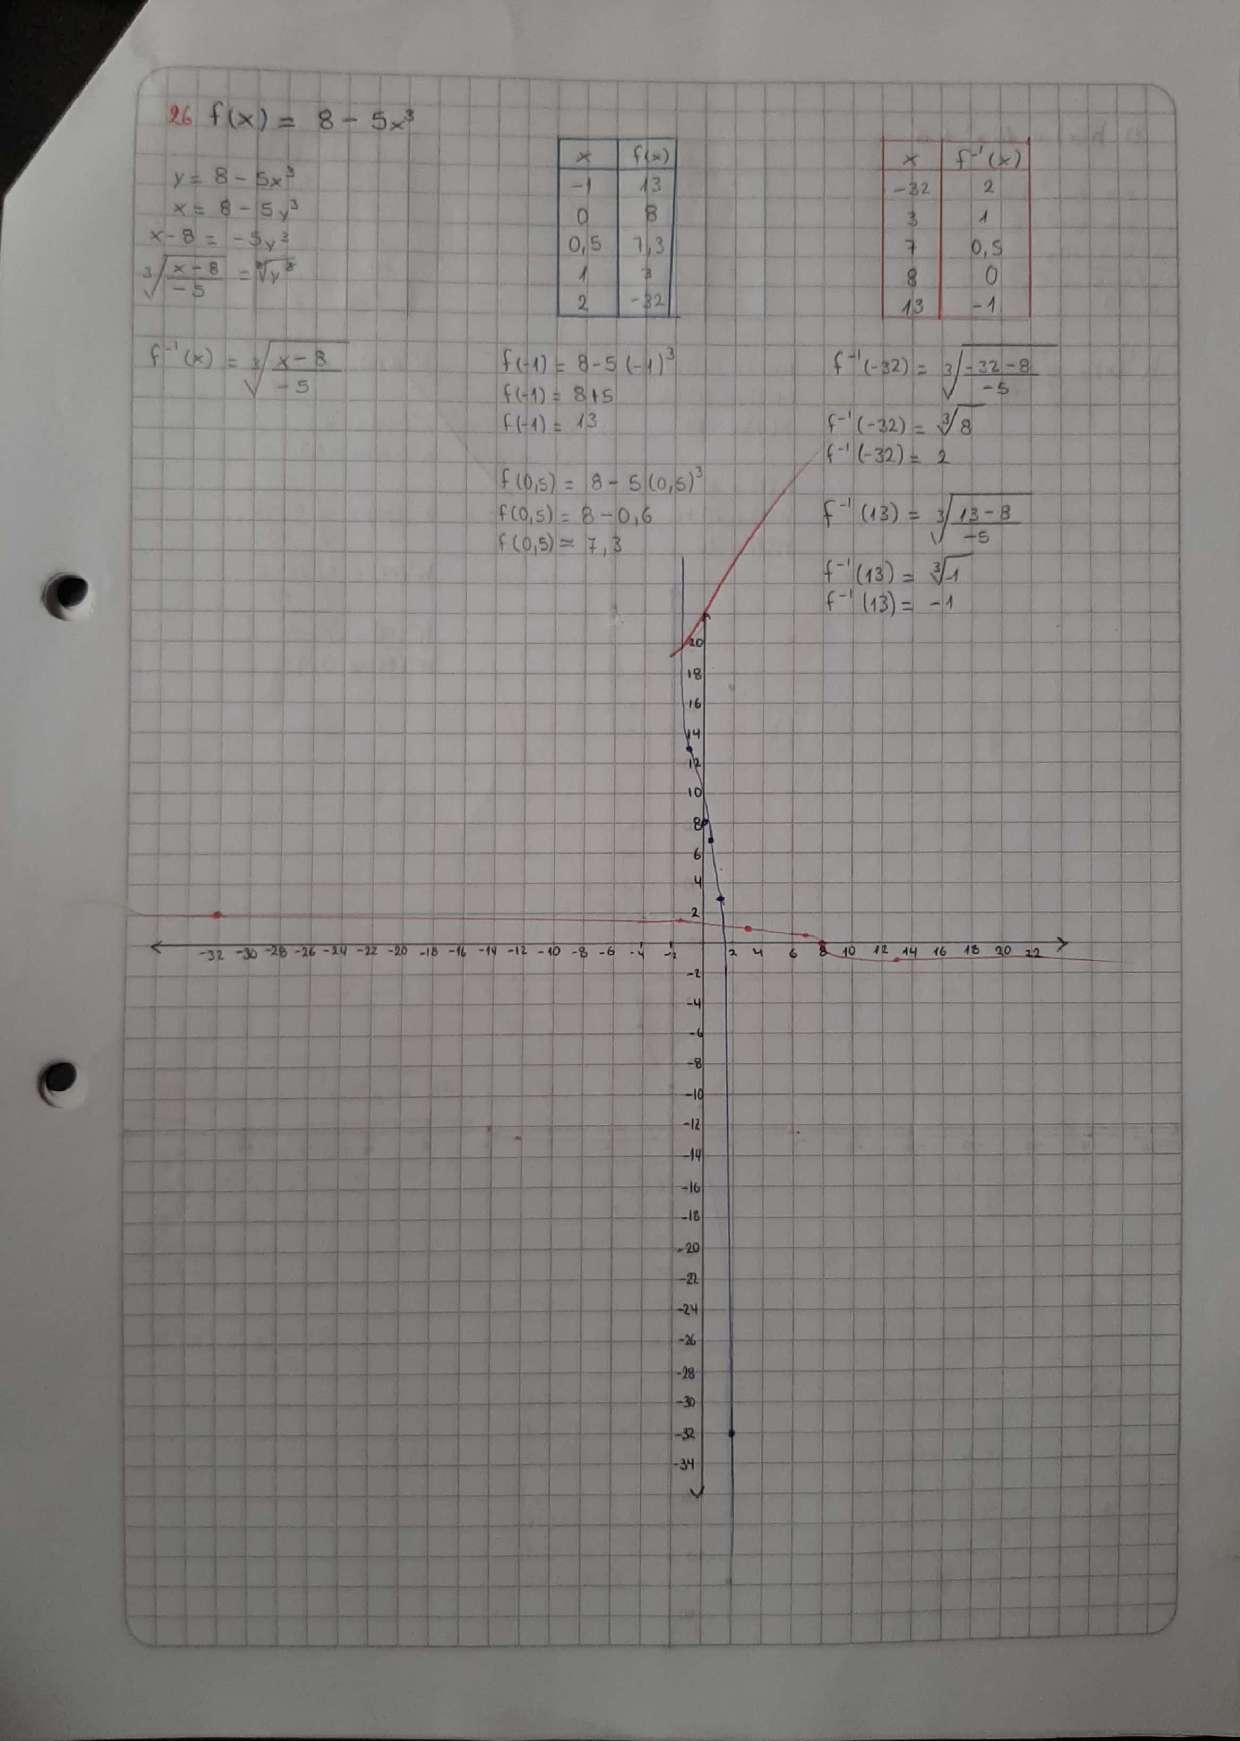 26 f(x) = 8 - 5x³
y = 8 - 5x³
x = 8 - 5y³
x - 8 = -5y³
∛((x-8)/-5) = ∛y³
f⁻¹(x) = ∛((x-8)/-5)
x f(x)
-1 13
0 8
0,5 7,3
1 3
2 -32
x f⁻¹(x)
-32 2
3 1
7 0,5
8 0
13 -1
f(-1) = 8 - 5 (-1)³
f(-1) = 8+5
f(-1) = 13
f(0,5) = 8 - 5 (0,5)³
f(0,5) = 8 - 0,6
f(0,5) = 7,3
f⁻¹(-32) = ∛((-32-8)/-5)
f⁻¹(-32) = ∛8
f⁻¹(-32) = 2
f⁻¹(13) = ∛((13-8)/-5)
f⁻¹(13) = ∛1
f⁻¹(13) = -1
20
18
16
14
12
10
8
6
4
2
-32 -30 -28 -26 -24 -22 -20 -18 -16 -14 -12 -10 -8 -6 -4 -2 2 4 6 8 10 12 14 16 18 20 22
-2
-4
-6
-8
-10
-12
-14
-16
-18
-20
-22
-24
-26
-28
-30
-32
-34